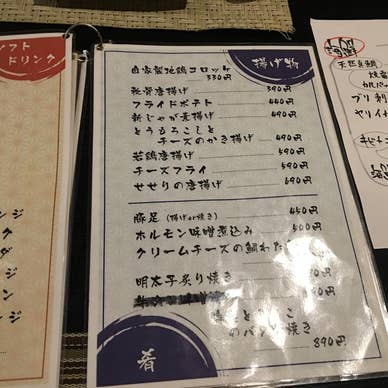 ソフト
ドリンク
揚げ物
自家製地鶏コロッケ
330円
軟骨唐揚げ 390円
フライドポテト 440円
新じゃが素揚げ 490円
とうもろこしと
チーズのかき揚げ 490円
若鶏唐揚げ 590円
チーズフライ 590円
せせりの唐揚げ 690円
豚足(揚げor焼き) 450円
ホルモン味噌煮込み 500円
クリームチーズの鯛わた
明太子炙り焼き
のバター焼き
890円
肴
天然真鯛
ブリ刺
ヤリイカ
ンジ
ク
ダ
ン
ンジ